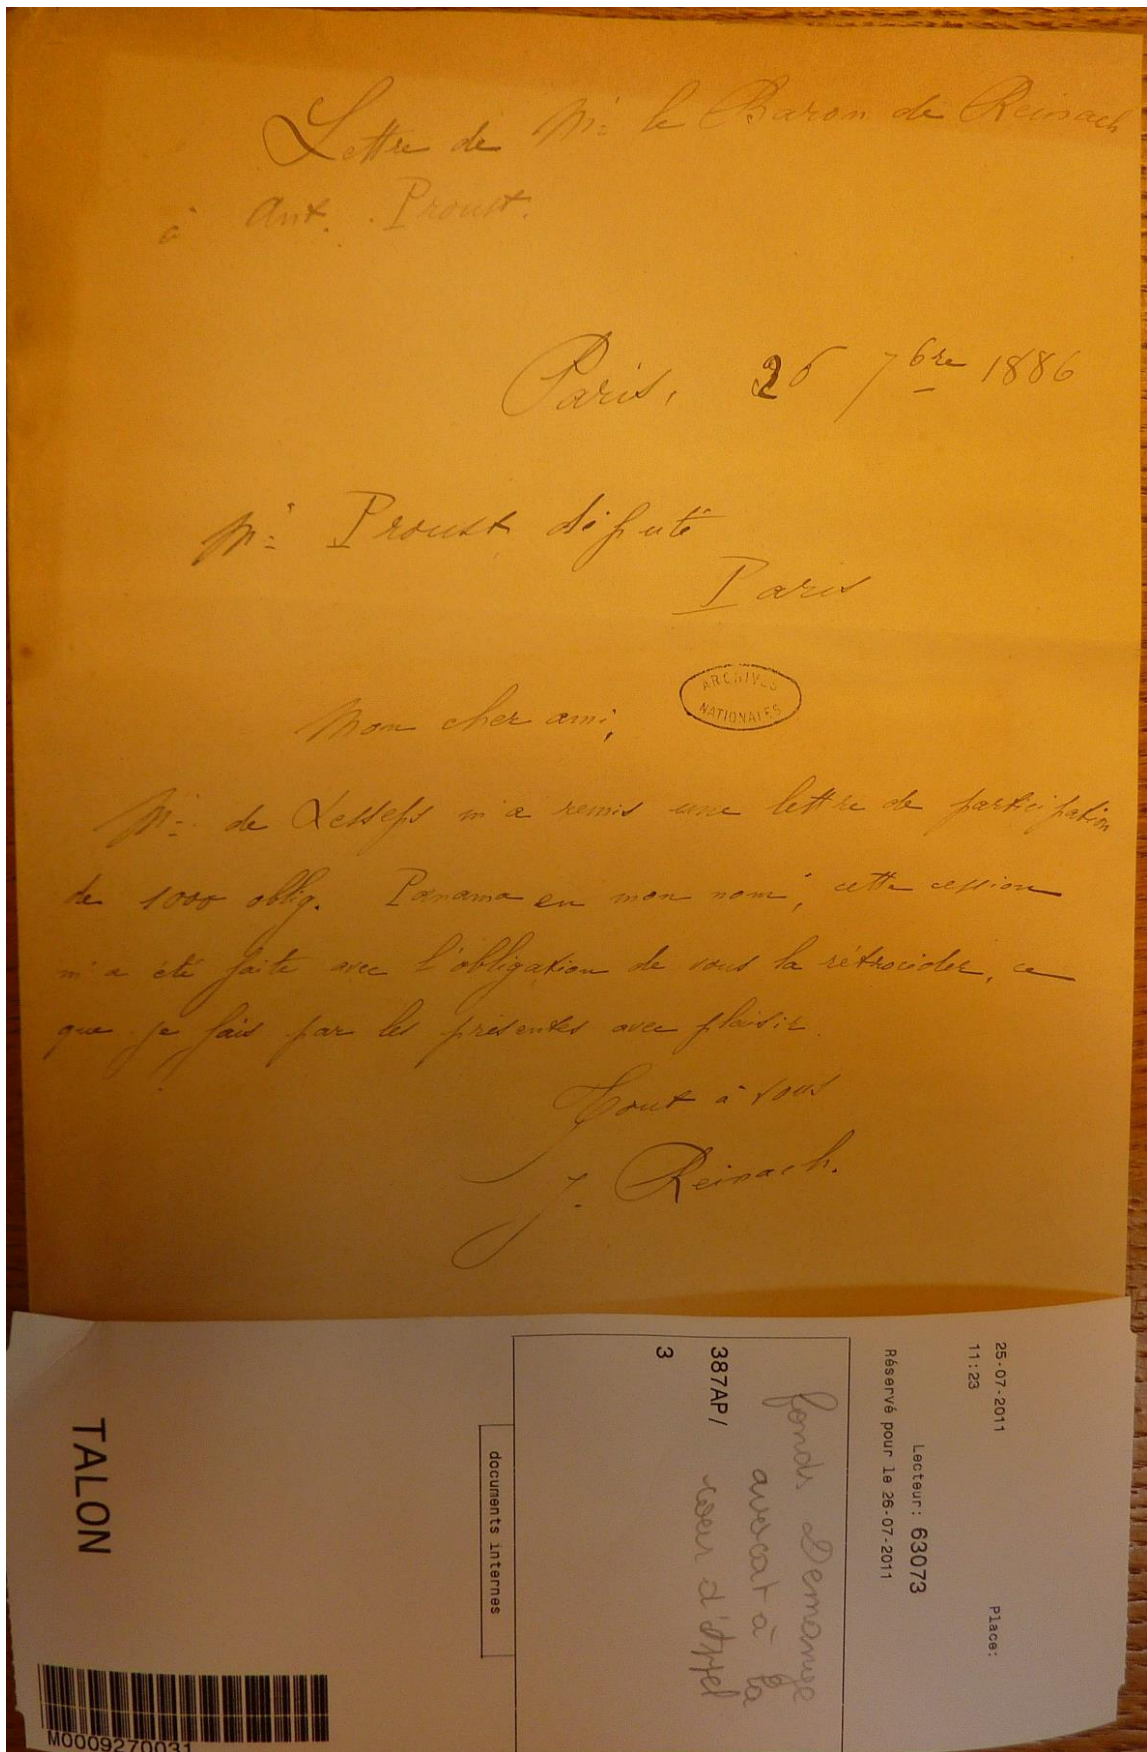 Lettre de Mr. le Baron de Reinach
à Ant. Proust.
Paris, 26 7bre 1886
Mr. Proust député
Paris
ARCHIVES
NATIONALES
Mon cher ami,
Mr. de Lesseps m'a remis une lettre de participation
de 1000 oblig. Panama en mon nom, cette cession
m'a été faite avec l'obligation de vous la rétrocéder, ce
que je fais par les présentes avec plaisir.
Tout à vous
J. Reinach.
25-07-2011 Place:
11:23
Lecteur: 63073
Réservé pour le 26-07-2011
fonds Demange
avocat à la
cour d'Appel
387AP/
3
documents internes
TALON
M0009270031